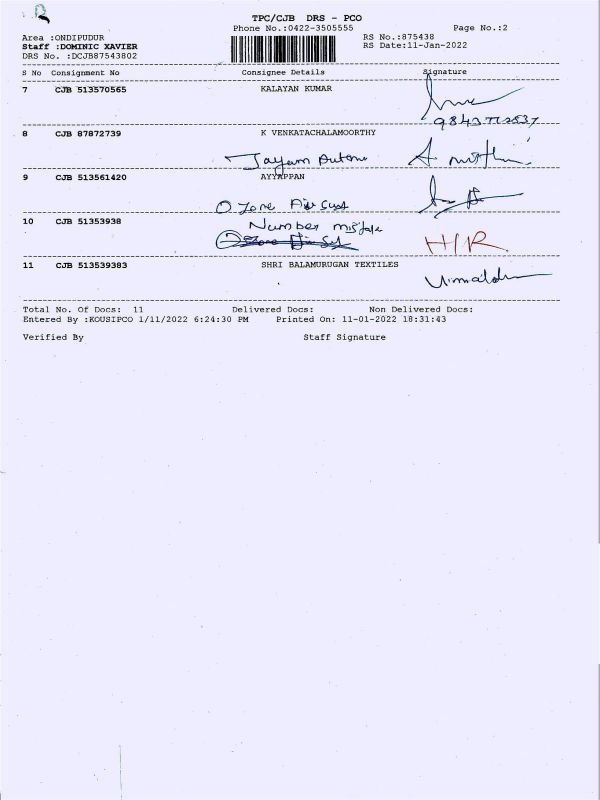 TPC/CJB DRS - PCO
Phone No.:0422-3505555 Page No.:2
Area :ONDIPUDUR RS No.:875438
Staff :DOMINIC XAVIER RS Date:11-Jan-2022
DRS No. :DCJB87543802
S No Consignment No Consignee Details Signature
7 CJB 513570565 KALAYAN KUMAR
8 CJB 87872739 K VENKATACHALAMOORTHY
Jayam
9 CJB 513561420 AYYAPPAN
O Zone Air
10 CJB 51353938 Number mistake
H/R.
11 CJB 513539383 SHRI BALAMURUGAN TEXTILES
Total No. Of Docs: 11 Delivered Docs: Non Delivered Docs:
Entered By :KOUSIPCO 1/11/2022 6:24:30 PM Printed On: 11-01-2022 18:31:43
Verified By Staff Signature